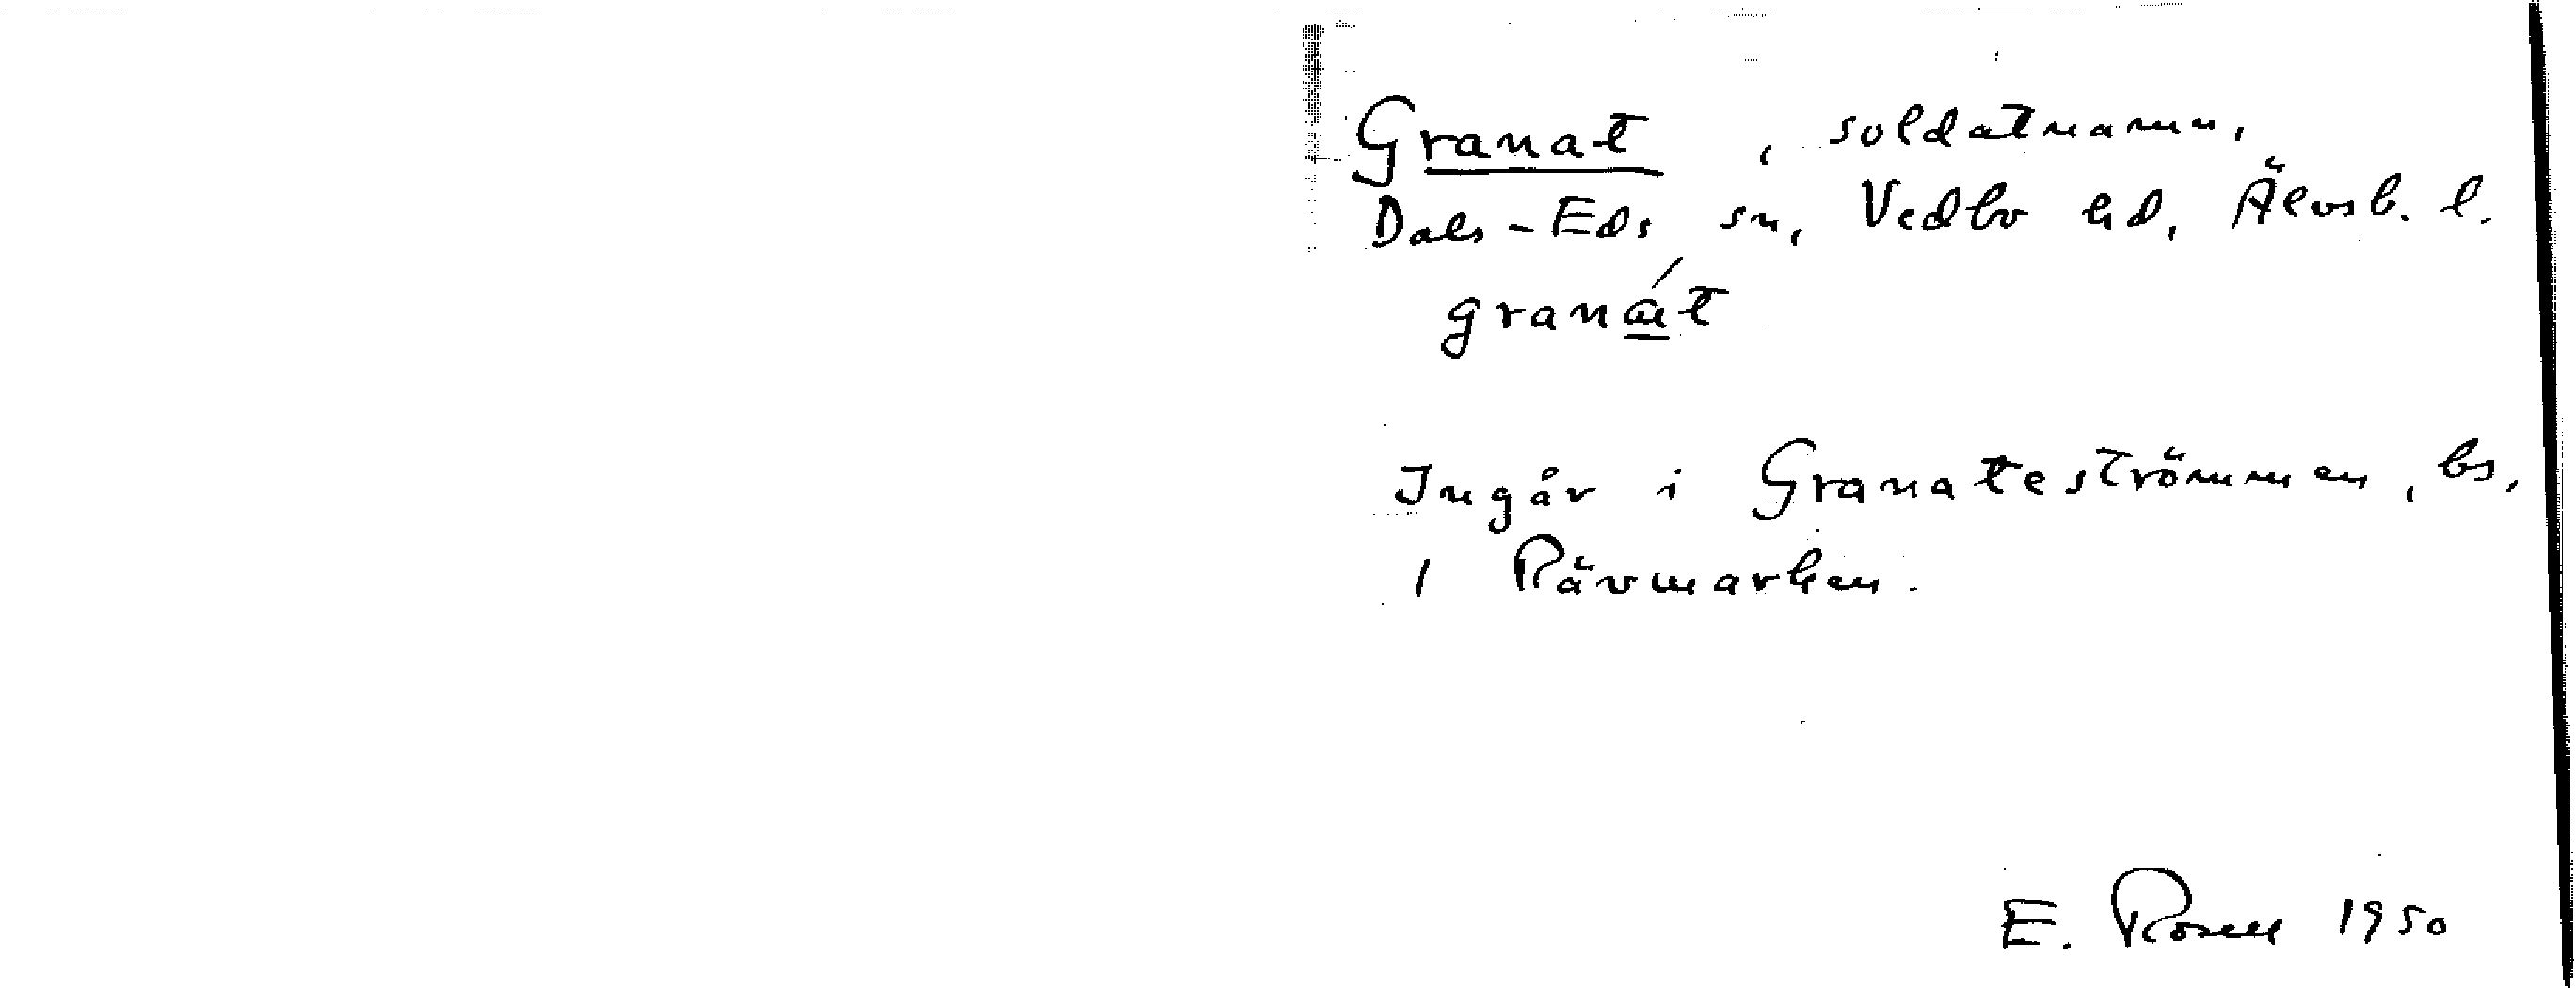 Granat, soldatnamn,
Dals-Eds sn, Vedbo hd, Älvsb. l.
granát
Ingår i Granateströmmen, bs,
i Rävmarken.
E. Rosell 1950